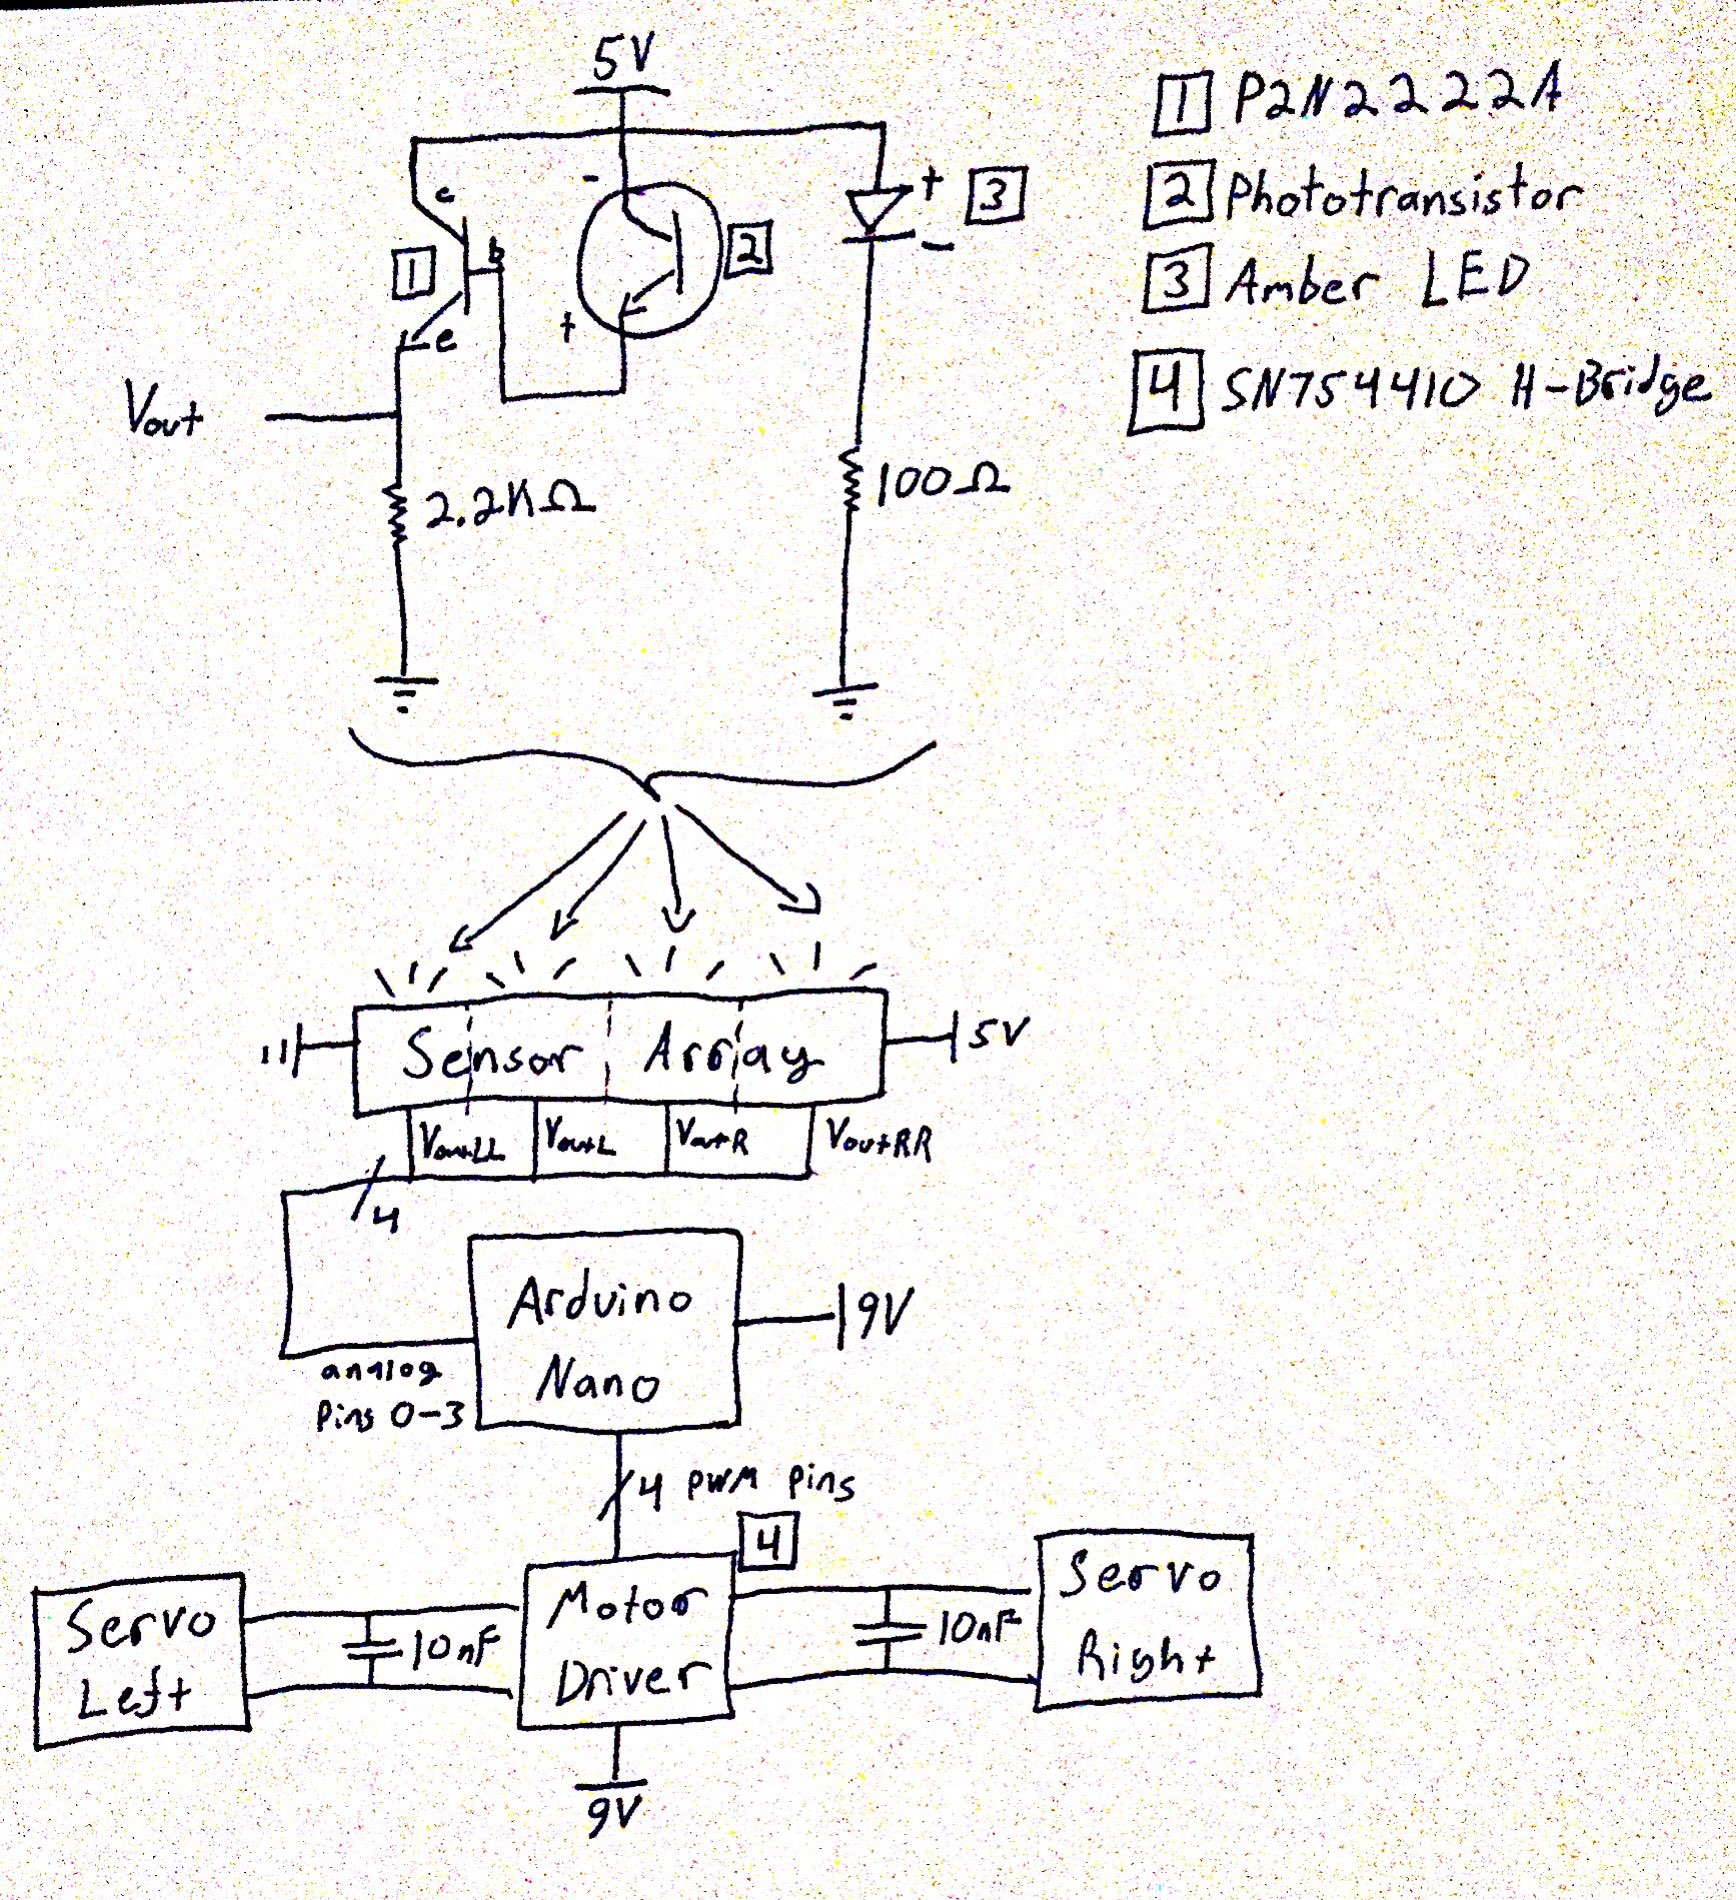 5V
1 P2N2222A
2 Phototransistor
3 Amber LED
4 SN754410 H-Bridge
c
-
+
3
1
b
2
e
+
-
Vout
2.2KΩ
100Ω
Sensor Array
5V
VoutLL
VoutL
VoutR
VoutRR
4
Arduino
Nano
9V
analog
Pins 0-3
4 PWM Pins
4
Servo
Left
10nF
Motor
Driver
10nF
Servo
Right
9V